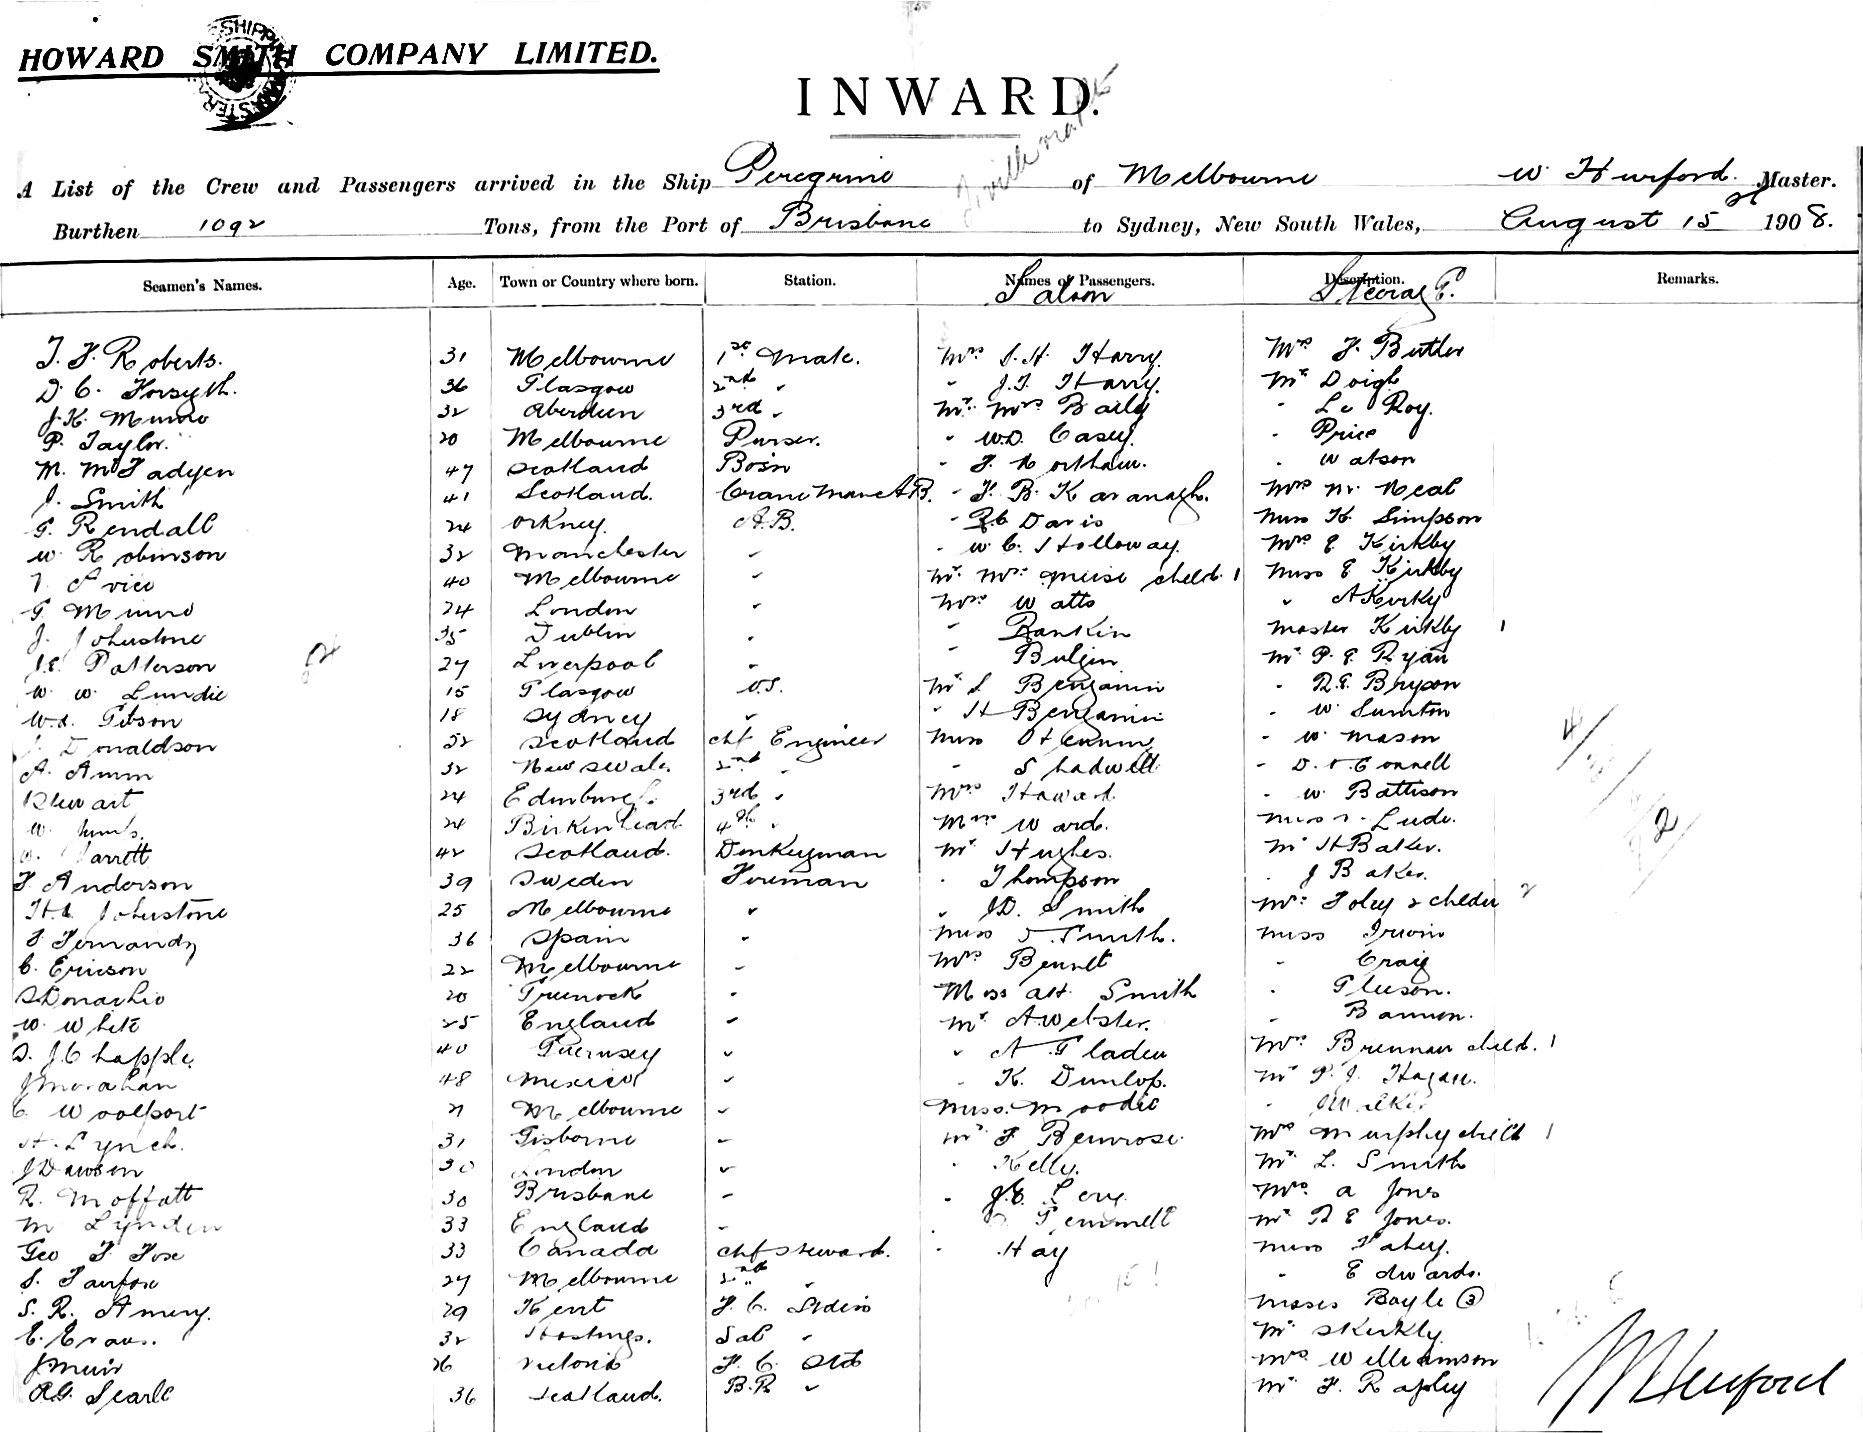 HOWARD SMITH COMPANY LIMITED.
SHIPPING MASTER
INWARD.
A List of the Crew and Passengers arrived in the Ship Peregrine of Melbourne W. Hurford Master.
Burthen 1092 Tons, from the Port of Brisbane to Sydney, New South Wales, August 15 1908.
Seamen's Names. Age. Town or Country where born. Station. Names of Passengers. Description. Remarks.
Saloon Steerage
T. F. Roberts. 31 Melbourne 1st Mate. Mrs S. H. Harry. Mrs F. Butler
D. C. Forsyth. 36 Glasgow 2nd " " J. T. Harry. Mr Doigh
J. K. Munro 32 Aberdeen 3rd " Mr. Mrs Baily " Le Roy.
P. Taylor. 20 Melbourne Purser. " W.D. Casey. " Price
M. McFadyen 47 Scotland Bosn " F. Northam. " Watson
J. Smith 41 Scotland. Crane Man A.B. " F. B. Kavanagh. Mrs M. Neal
G. Rendall 24 Orkney. A.B. " R.C. Davis Miss K. Simpson
W. Robinson 32 Manchester " " W. C. Holloway. Mrs E. Kirkby
Price 40 Melbourne " Mr. Mrs child 1 Miss E Kirkby
G Munro 24 London " Mrs Watts " A Kirkby
J. Johnstone 35 Dublin " " Rankin Master Kirkby 1
J.E. Patterson 27 Liverpool " " Bulgin Mr P. E. Ryan
W. W. Lundie 15 Glasgow O.S. Mr S Benjamin " R.G. Bryson
W.A. Gibson 18 Sydney " " H Benjamin " W. Sumton
Donaldson 52 Scotland chf Engineer Miss " W. Mason
A. Amm 32 New S Wales 2nd " " Shadwell " D. O'Connell
Stewart 24 Edinburgh. 3rd " Mrs Howard. " W Battison
W. 24 Birkenhead 4th " Mrs Ward. Miss
W. Jarrett 42 Scotland. Donkeyman Mr Hughes. Mr H Baker.
F. Anderson 39 Sweden Fireman " Thompson " J Baker.
H.A. Johnstone 25 Melbourne " " J.D. Smith Mrs Foley 2 childn 2
F Fernandz 36 Spain " Miss Smith. Miss Irwin
C. Ericson 22 Melbourne " Mrs Bennet " Craig
S Donachie 20 Greenock " Miss A.H. Smith " Gleeson.
W. White 25 England " Mr A Webster. " Bannon.
D. J. Chapple. 40 Guernsey " " A Gladen Mrs Brennan child. 1
J Monahan 48 Mexico " " K. Dunlop. Mr P. J. Hagan.
C Woolport 21 Melbourne " Miss. Moodie " Walker
H. Lynch. 31 Gisborne " Mr F Penrose. Mrs Murphy child 1
J Dawson 30 London " " Kelly. Mr L. Smith
R. Moffatt 30 Brisbane " " J.C. Levy. Mrs. A Jones
M Lynden 33 England " " Gemmell Mr R E Jones.
Geo F Fox 33 Canada chf Steward. " Hay Miss Fahey.
S. Fairfax 27 Melbourne 2nd " " Edwards.
S. R. Amery. 29 Kent F. C. Stdess Moses Boyle 3
E. Evans. 32 Hastings. Sal " Mr S Kirkby.
J Muir 26 Victoria F. C. Std Mrs Williamson
R.G. Searle 36 Scotland. B.R " Mr F. Rapley
W Hurford